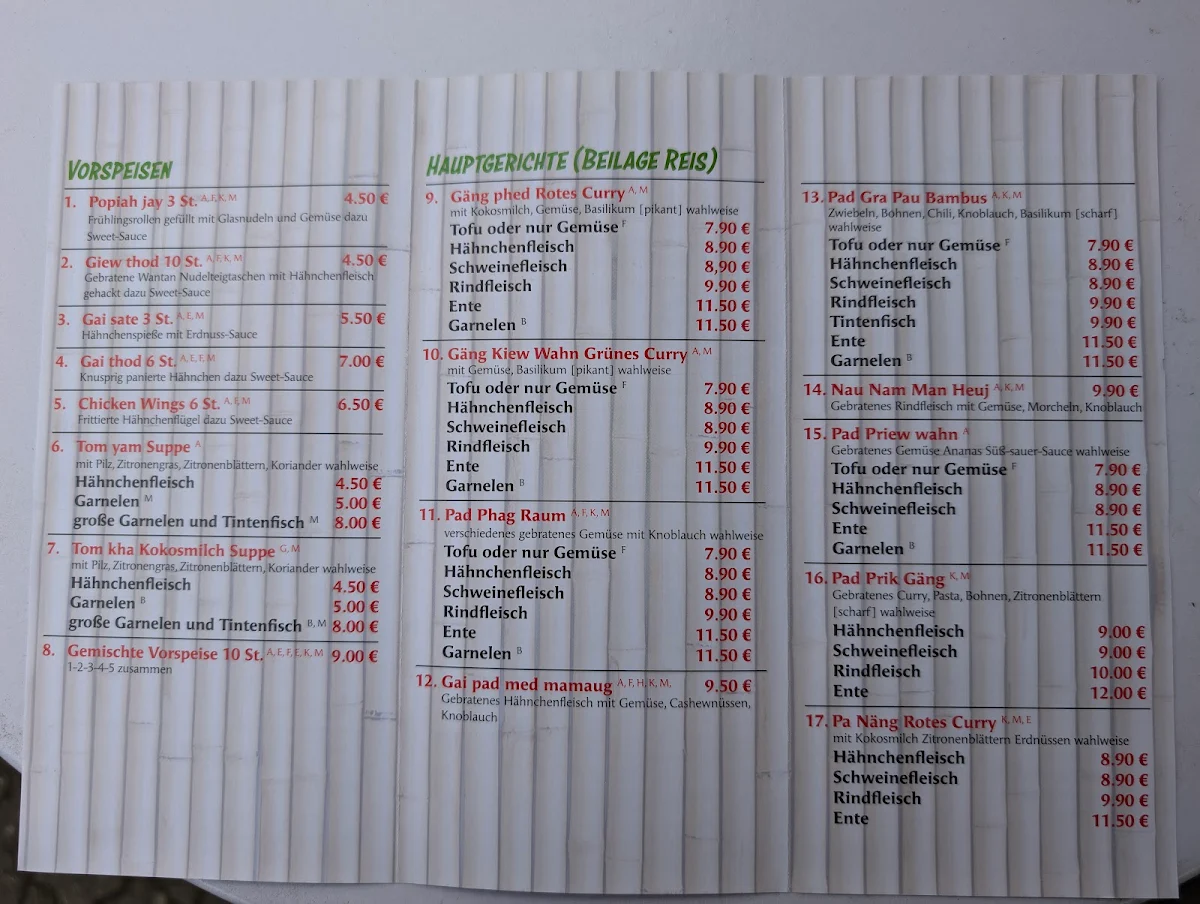 VORSPEISEN
1. Popiah jay 3 St. A, F, K, M 4.50 €
Frühlingsrollen gefüllt mit Glasnudeln und Gemüse dazu
Sweet-Sauce
2. Giew thod 10 St. A, F, K, M 4.50 €
Gebratene Wantan Nudelteigtaschen mit Hähnchenfleisch
gehackt dazu Sweet-Sauce
3. Gai sate 3 St. A, E, M 5.50 €
Hähnchenspieße mit Erdnuss-Sauce
4. Gai thod 6 St. A, E, F, M 7.00 €
Knusprig panierte Hähnchen dazu Sweet-Sauce
5. Chicken Wings 6 St. A, F, M 6.50 €
Frittierte Hähnchenflügel dazu Sweet-Sauce
6. Tom yam Suppe A
mit Pilz, Zitronengras, Zitronenblättern, Koriander wahlweise
Hähnchenfleisch 4.50 €
Garnelen M 5.00 €
große Garnelen und Tintenfisch M 8.00 €
7. Tom kha Kokosmilch Suppe G, M
mit Pilz, Zitronengras, Zitronenblättern, Koriander wahlweise
Hähnchenfleisch 4.50 €
Garnelen B 5.00 €
große Garnelen und Tintenfisch B, M 8.00 €
8. Gemischte Vorspeise 10 St. A, E, F, E, K, M 9.00 €
1-2-3-4-5 zusammen
HAUPTGERICHTE (BEILAGE REIS)
9. Gäng phed Rotes Curry A, M
mit Kokosmilch, Gemüse, Basilikum [pikant] wahlweise
Tofu oder nur Gemüse F 7.90 €
Hähnchenfleisch 8.90 €
Schweinefleisch 8,90 €
Rindfleisch 9.90 €
Ente 11.50 €
Garnelen B 11.50 €
10. Gäng Kiew Wahn Grünes Curry A, M
mit Gemüse, Basilikum [pikant] wahlweise
Tofu oder nur Gemüse F 7.90 €
Hähnchenfleisch 8.90 €
Schweinefleisch 8.90 €
Rindfleisch 9.90 €
Ente 11.50 €
Garnelen B 11.50 €
11. Pad Phag Raum A, F, K, M
verschiedenes gebratenes Gemüse mit Knoblauch wahlweise
Tofu oder nur Gemüse F 7.90 €
Hähnchenfleisch 8.90 €
Schweinefleisch 8.90 €
Rindfleisch 9.90 €
Ente 11.50 €
Garnelen B 11.50 €
12. Gai pad med mamaug A, F, H, K, M, 9.50 €
Gebratenes Hähnchenfleisch mit Gemüse, Cashewnüssen,
Knoblauch
13. Pad Gra Pau Bambus A, K, M
Zwiebeln, Bohnen, Chili, Knoblauch, Basilikum [scharf]
wahlweise
Tofu oder nur Gemüse F 7.90 €
Hähnchenfleisch 8.90 €
Schweinefleisch 8.90 €
Rindfleisch 9.90 €
Tintenfisch 9.90 €
Ente 11.50 €
Garnelen B 11.50 €
14. Nau Nam Man Heuj A, K, M 9.90 €
Gebratenes Rindfleisch mit Gemüse, Morcheln, Knoblauch
15. Pad Priew wahn A
Gebratenes Gemüse Ananas Süß-sauer-Sauce wahlweise
Tofu oder nur Gemüse F 7.90 €
Hähnchenfleisch 8.90 €
Schweinefleisch 8.90 €
Ente 11.50 €
Garnelen B 11.50 €
16. Pad Prik Gäng K, M
Gebratenes Curry, Pasta, Bohnen, Zitronenblättern
[scharf] wahlweise
Hähnchenfleisch 9.00 €
Schweinefleisch 9.00 €
Rindfleisch 10.00 €
Ente 12.00 €
17. Pa Näng Rotes Curry K, M, E
mit Kokosmilch Zitronenblättern Erdnüssen wahlweise
Hähnchenfleisch 8.90 €
Schweinefleisch 8.90 €
Rindfleisch 9.90 €
Ente 11.50 €